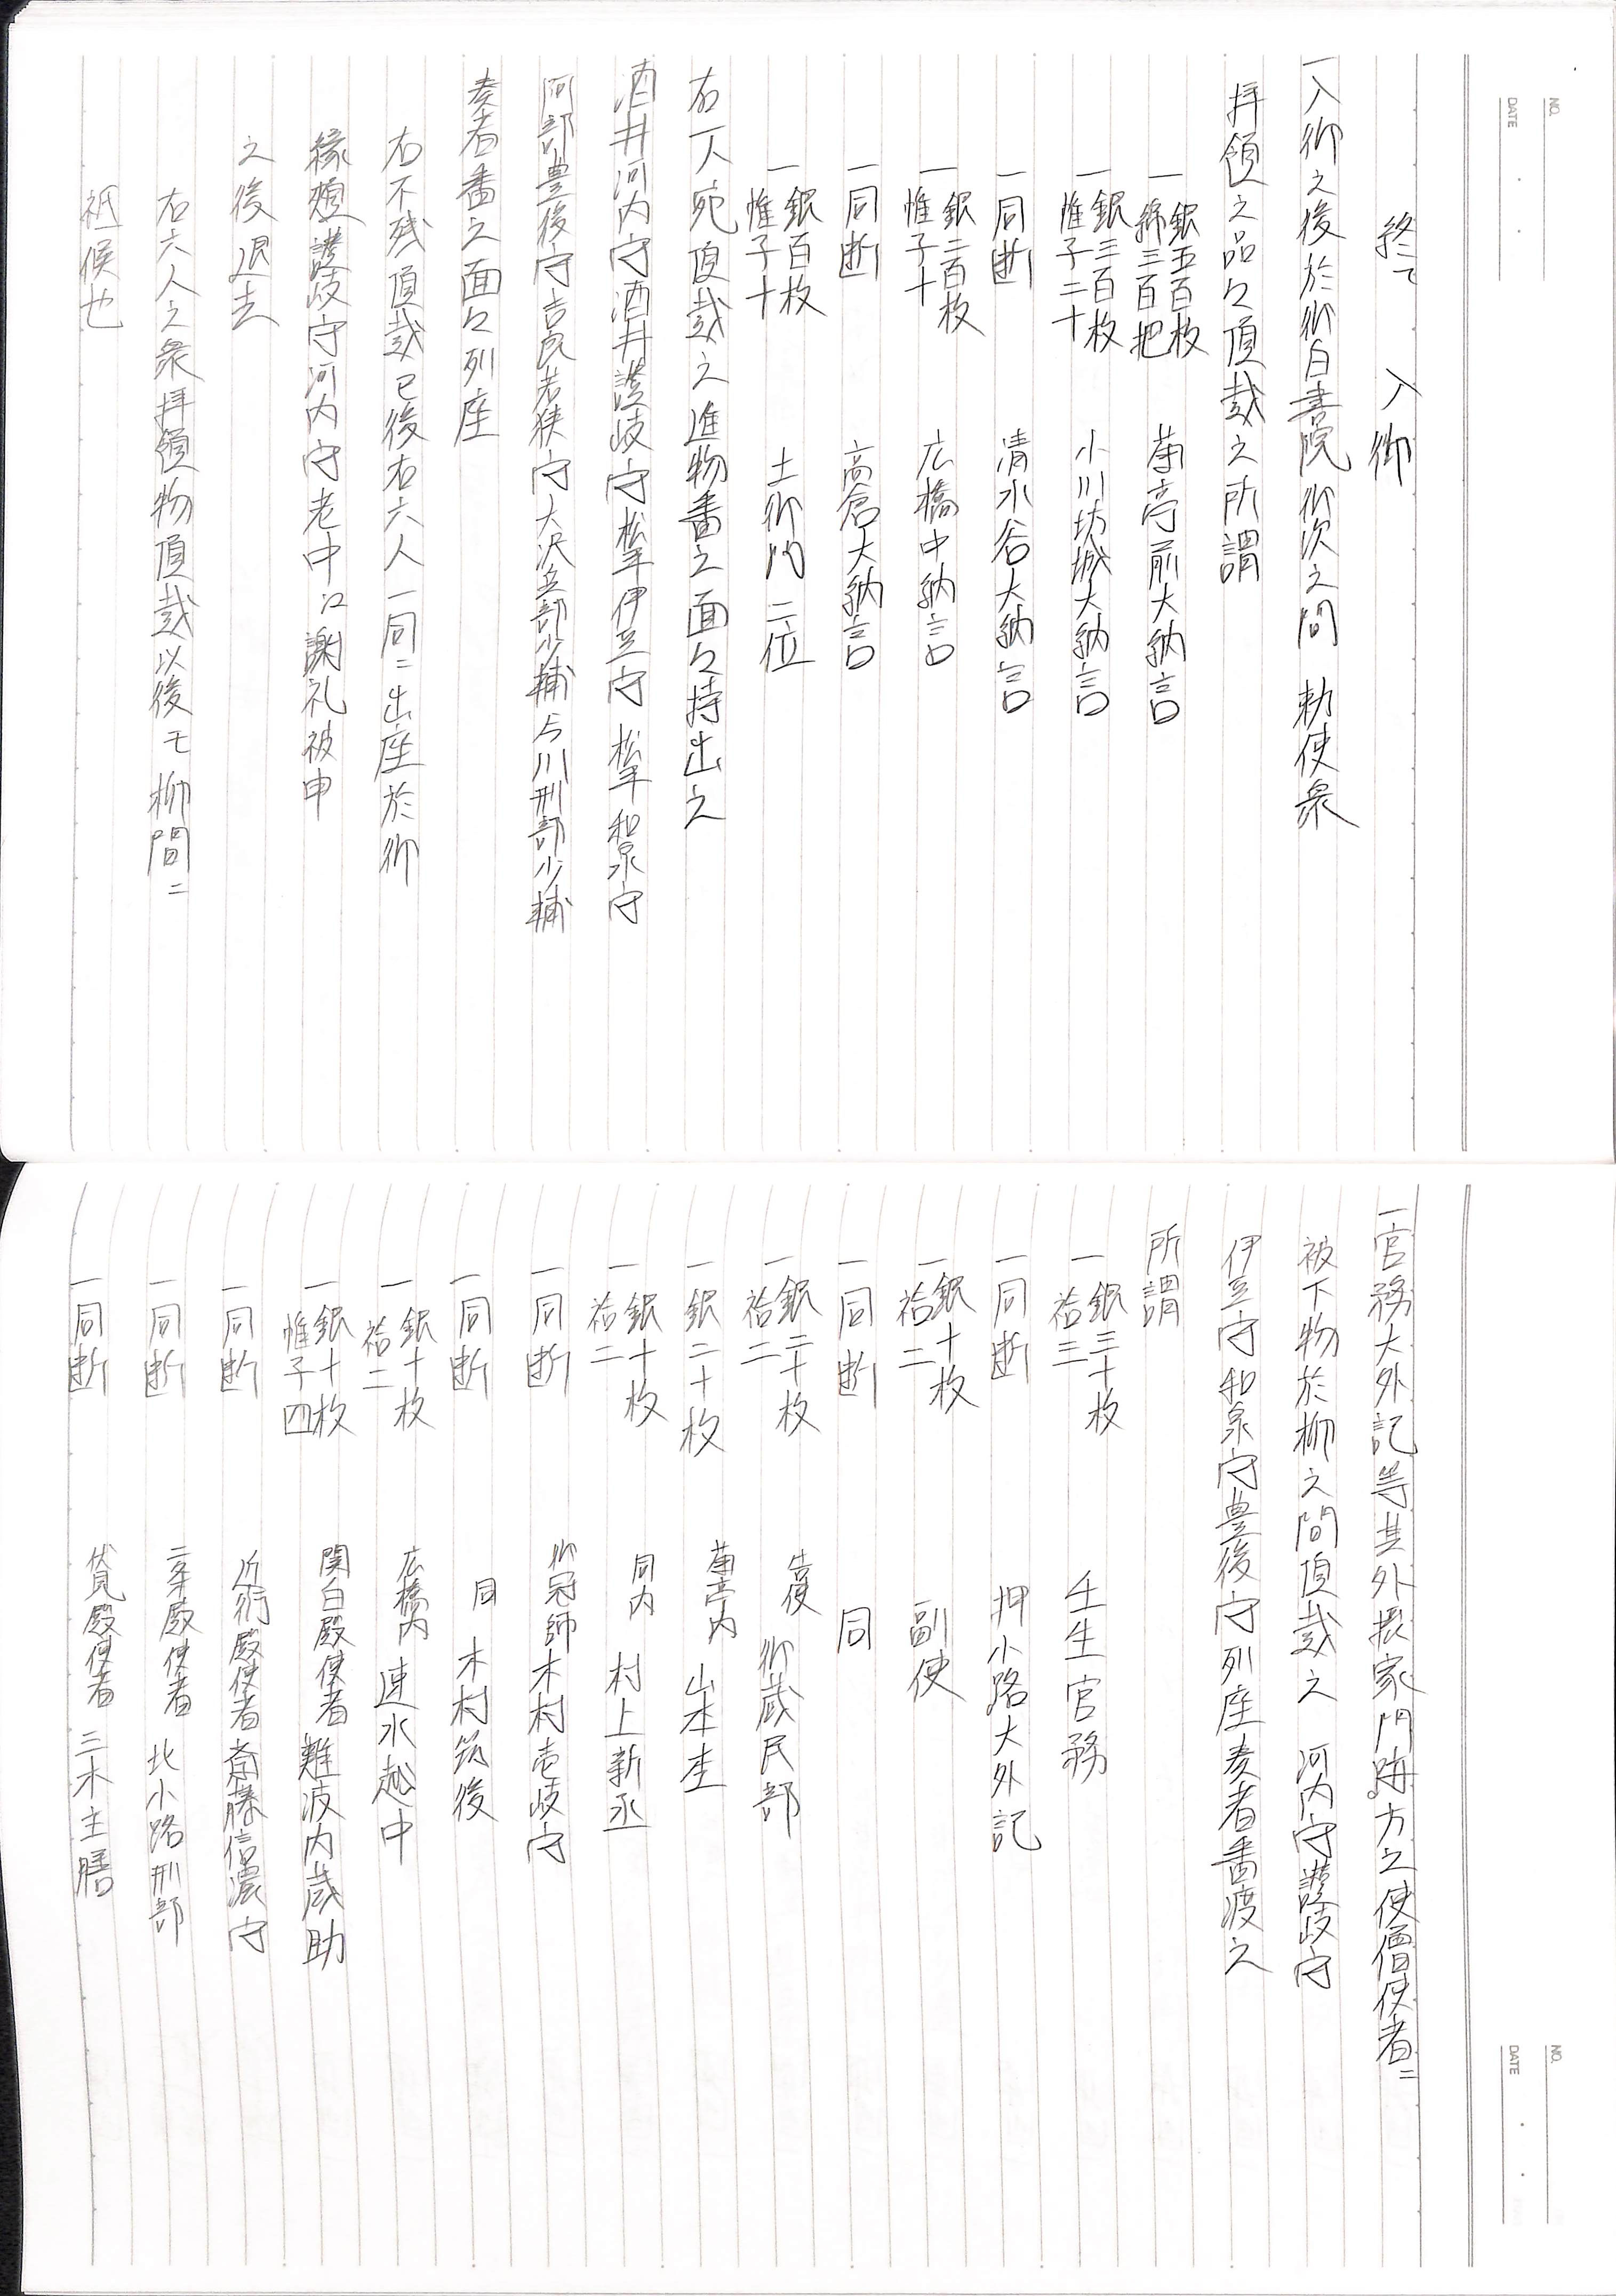 NO.
DATE
終て　入御
一入御之後於御白書院御次之間　勅使衆
拝領之品々頂戴之所謂
一銀五百枚 綿三百把　菊亭前大納言
一銀三百枚 帷子二十　小川坊城大納言
一同断　清水谷大納言
一銀二百枚 帷子十　広橋中納言
一同断　高倉大納言
一銀百枚 帷子十　土御門二位
右一人宛頂戴之進物番之面々持出之
酒井河内守酒井讃岐守松平伊豆守松平和泉守
阿部豊後守吉良若狭守大沢兵部少輔吉川刑部少輔
奏者番之面々列座
右不残頂戴已後右六人一同ニ出座於御
縁頬讃岐守河内守老中江謝礼被申
之後退去
右六人之衆拝領物頂戴以後モ柳間ニ
祗候也
NO.
DATE
一官務大外記等其外摂家門跡方之使僧使者ニ
被下物於柳之間頂戴之　河内守讃岐守
伊豆守和泉守豊後守列座奏者番渡之
所謂
一銀三十枚 袷三　壬生官務
一同断　押小路大外記
一銀十枚 袷二　副使
一同断　同
一銀二十枚 袷二　出納 御蔵民部
一銀二十枚　菊亭内 山本杢
一銀十枚 袷二　同内 村上新丞
一同断　御冠師 木村壱岐守
一同断　同 木村筑後
一銀十枚 袷二　広橋内 速水越中
一銀十枚 帷子四　関白殿使者 難波内蔵助
一同断　近衛殿使者 斎藤信濃守
一同断　二条殿使者 北小路刑部
一同断　伏見殿使者 三木主膳